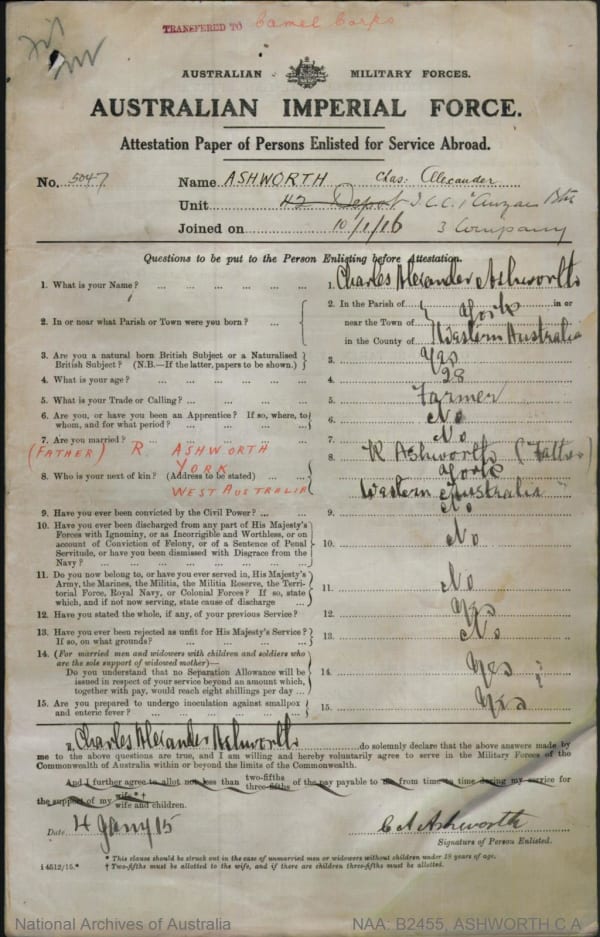 TRANSFERED TO Camel Corps
AUSTRALIAN MILITARY FORCES.
AUSTRALIAN IMPERIAL FORCE.
Attestation Paper of Persons Enlisted for Service Abroad.
No. 5047 Name ASHWORTH Chas: Alexander
Unit 42 Depot I.C.C. 1 Anzac Btn
Joined on 10/1/16 3 Company
Questions to be put to the Person Enlisting before Attestation.
1. What is your Name? ... 1. Charles Alexander Ashworth
2. In or near what Parish or Town were you born? ... 2. In the Parish of York in or
near the Town of
in the County of Western Australia
3. Are you a natural born British Subject or a Naturalised
British Subject? (N.B.—If the latter, papers to be shown.) 3. Yes
4. What is your age? ... 4. 28
5. What is your Trade or Calling? ... 5. Farmer
6. Are you, or have you been an Apprentice? If so, where, to
whom, and for what period? ... 6. No
7. Are you married? ... 7. No
(FATHER) R. ASHWORTH
YORK
WEST AUSTRALIA
8. Who is your next of kin? (Address to be stated) ... 8. R Ashworth (Father)
York
Western Australia
9. Have you ever been convicted by the Civil Power? ... 9. No
10. Have you ever been discharged from any part of His Majesty's
Forces with Ignominy, or as Incorrigible and Worthless, or on
account of Conviction of Felony, or of a Sentence of Penal
Servitude, or have you been dismissed with Disgrace from the
Navy? ... 10. No
11. Do you now belong to, or have you ever served in, His Majesty's
Army, the Marines, the Militia, the Militia Reserve, the Terri-
torial Force, Royal Navy, or Colonial Forces? If so, state
which, and if not now serving, state cause of discharge ... 11. No
12. Have you stated the whole, if any, of your previous Service? 12. Yes
13. Have you ever been rejected as unfit for His Majesty's Service?
If so, on what grounds? ... 13. No
14. (For married men and widowers with children and soldiers who
are the sole support of widowed mother)—
Do you understand that no Separation Allowance will be
issued in respect of your service beyond an amount which,
together with pay, would reach eight shillings per day ... 14. Yes
15. Are you prepared to undergo inoculation against smallpox
and enteric fever? ... 15. Yes
I, Charles Alexander Ashworth do solemnly declare that the above answers made by
me to the above questions are true, and I am willing and hereby voluntarily agree to serve in the Military Forces of the
Commonwealth of Australia within or beyond the limits of the Commonwealth.
And I further agree to allot not less than two-fifths three-fifths of the pay payable to me from time to time during my service for
the support of my wife*† wife and children.
Date 4 Jany 15 C A Ashworth
Signature of Person Enlisted.
* This clause should be struck out in the case of unmarried men or widowers without children under 18 years of age.
i 4512/15.* † Two-fifths must be allotted to the wife, and if there are children three-fifths must be allotted.
National Archives of Australia NAA: B2455, ASHWORTH C A